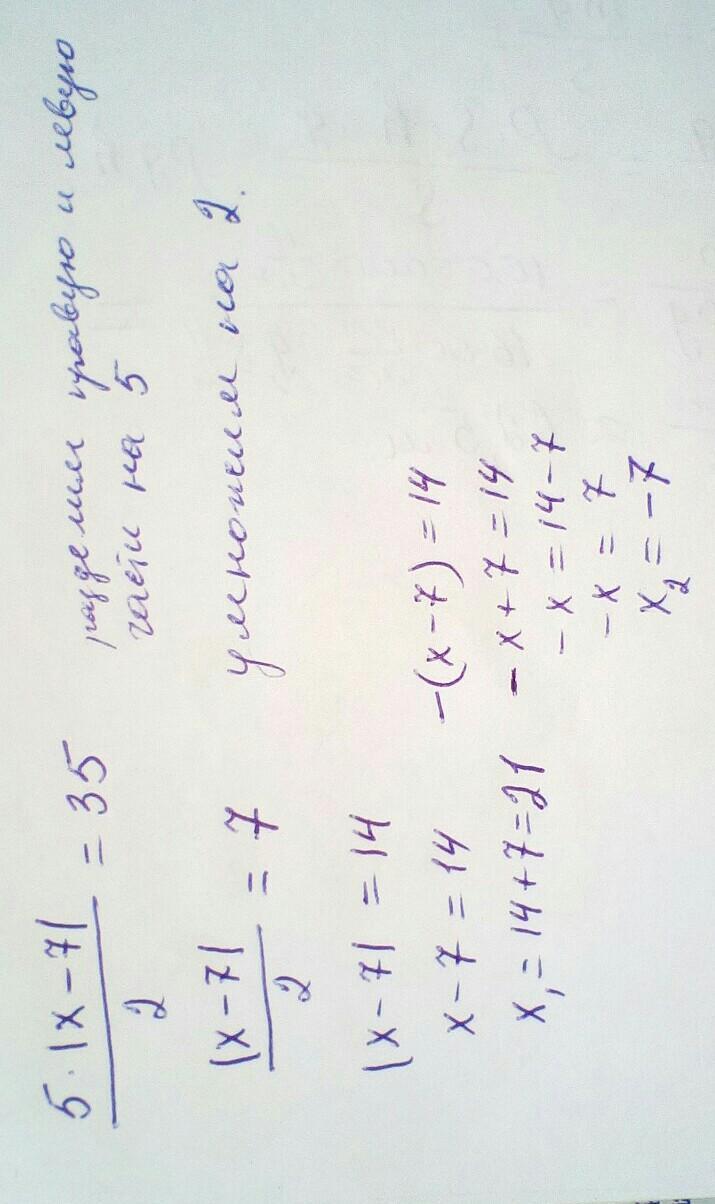 5·|x-7| / 2 = 35 разделим правую и левую
части на 5
|x-7| / 2 = 7 умножим на 2.
|x-7| = 14
x-7 = 14 -(x-7) = 14
x₁ = 14+7 = 21 -x+7 = 14
-x = 14-7
-x = 7
x₂ = -7